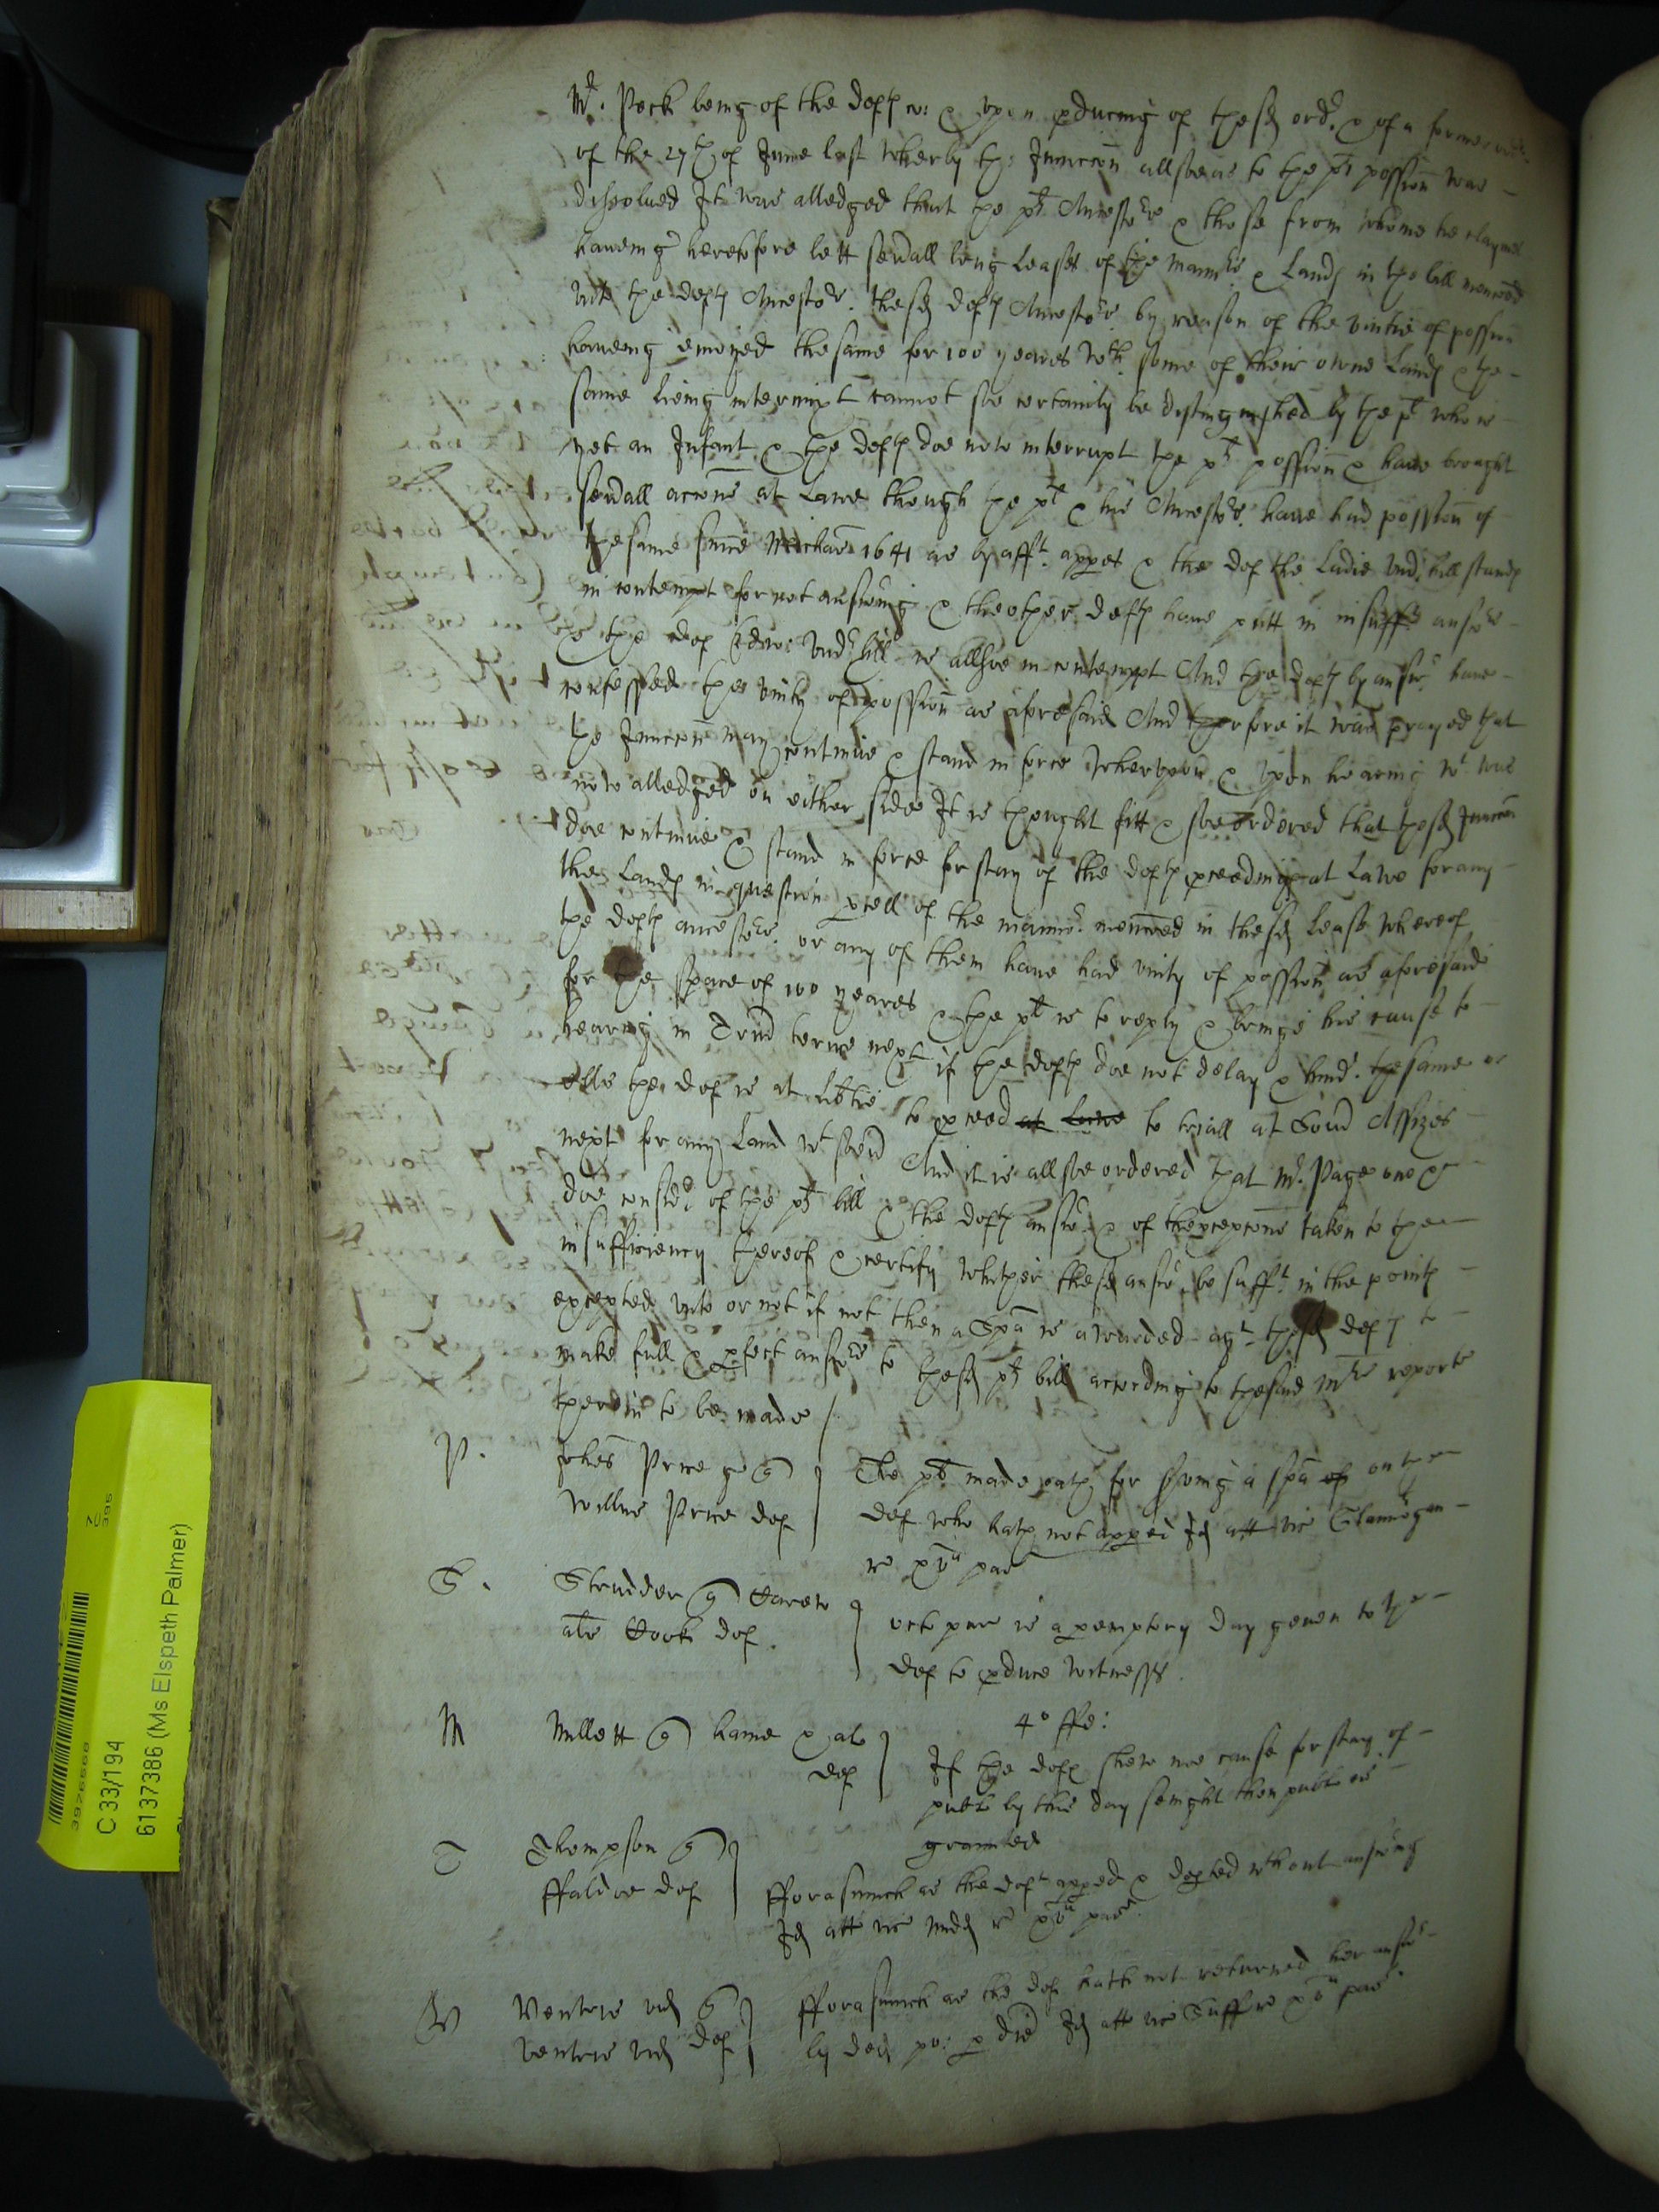 Mr. Peck being of the deft co: & upon pducing of the sd ordr & of a former ordr
of the 27th of June last wherby the Iniuncion allsoe as to the plts possion was
dissolued It was alledged that the plts Ancestors & those from whome he claymes
haueing heretofore lett seuall long Leases of the mannors & Lands in the bill menconed
unto the defts Ancestors the sd defts Ancestors by reason of the unitie of possion
haueing enioyed the same for 100 yeares wth some of their owne Lands & the
same lieing intermixt cannot soe certainly be distinguished by the plt who is
yet an Infant & the defts doe now interrupt the plts possion & haue brought
seuall accons at Lawe though the plt & his Ancestors haue had possion of
the same since Michas 1641 as by afft appes & the def the Ladie Undrhill stands
in contempt for not answing & the other defts haue putt in insufft answrs
& the def Edw: Undrhill is allsoe in contempt And the defts by answr haue
confessed the unity of possion as aforesaid And therfore it was prayed that
the Iniuncon may continue & stand in force Wherupon & upon hearing wt was
now alledged on either side It is thought fitt & soe ordered that the sd Iniuncon
doe continue & stand in force for stay of the defts pceedings at Lawe for any
the Lands in question pcell of the mannor menconed in the sd Lease whereof
the defts ancestors or any of them haue had unity of possion as aforesaid
for the space of 100 yeares & the plt is to reply & bringe his cause to
hearing in Trin terme next if the defts doe not delay & hindr the same or
ells the def is at libtie to pceed at Lawe to triall at Som Assizes
next for any Land wtsoeu And it is allsoe ordered that Mr. Page one &c
doe considr of the plts bill & the defts answr & of the excepcons taken to the
insufficiency thereof & certify whether the sd answr be sufft in the points
excepted unto or not if not then a Spa is awarded agt the sd defts to
make full & pfect answrs to the sd plts bill according to the said Mrs reporte
therein to be made /
P. Johes Price quer
Willus Price def
The plt made oath for serving a spa of on the
def who hath not apped Id att vic Glamorgan
is &c pas
S. Strudder quer
als Cooke def.
octo pur is a pemptory day geuen to the
def to pduce witnesses.
M Millett quer & al
def
4o ffe:
If the defts shew noe cause for stay of
publ by this day senight then publ is
graunted
T Thompson quer
ffaldoe def
fforasmuch as the deft apped & depted wthout answing
Id att vic Midd &c pas
V Ventris vid quer
Ventris vid def
fforasmuch as the def hath not returned her answr
by ded po: Id att vic Suff &c pas
C 33/194
6137386 (Ms Elspeth Palmer)